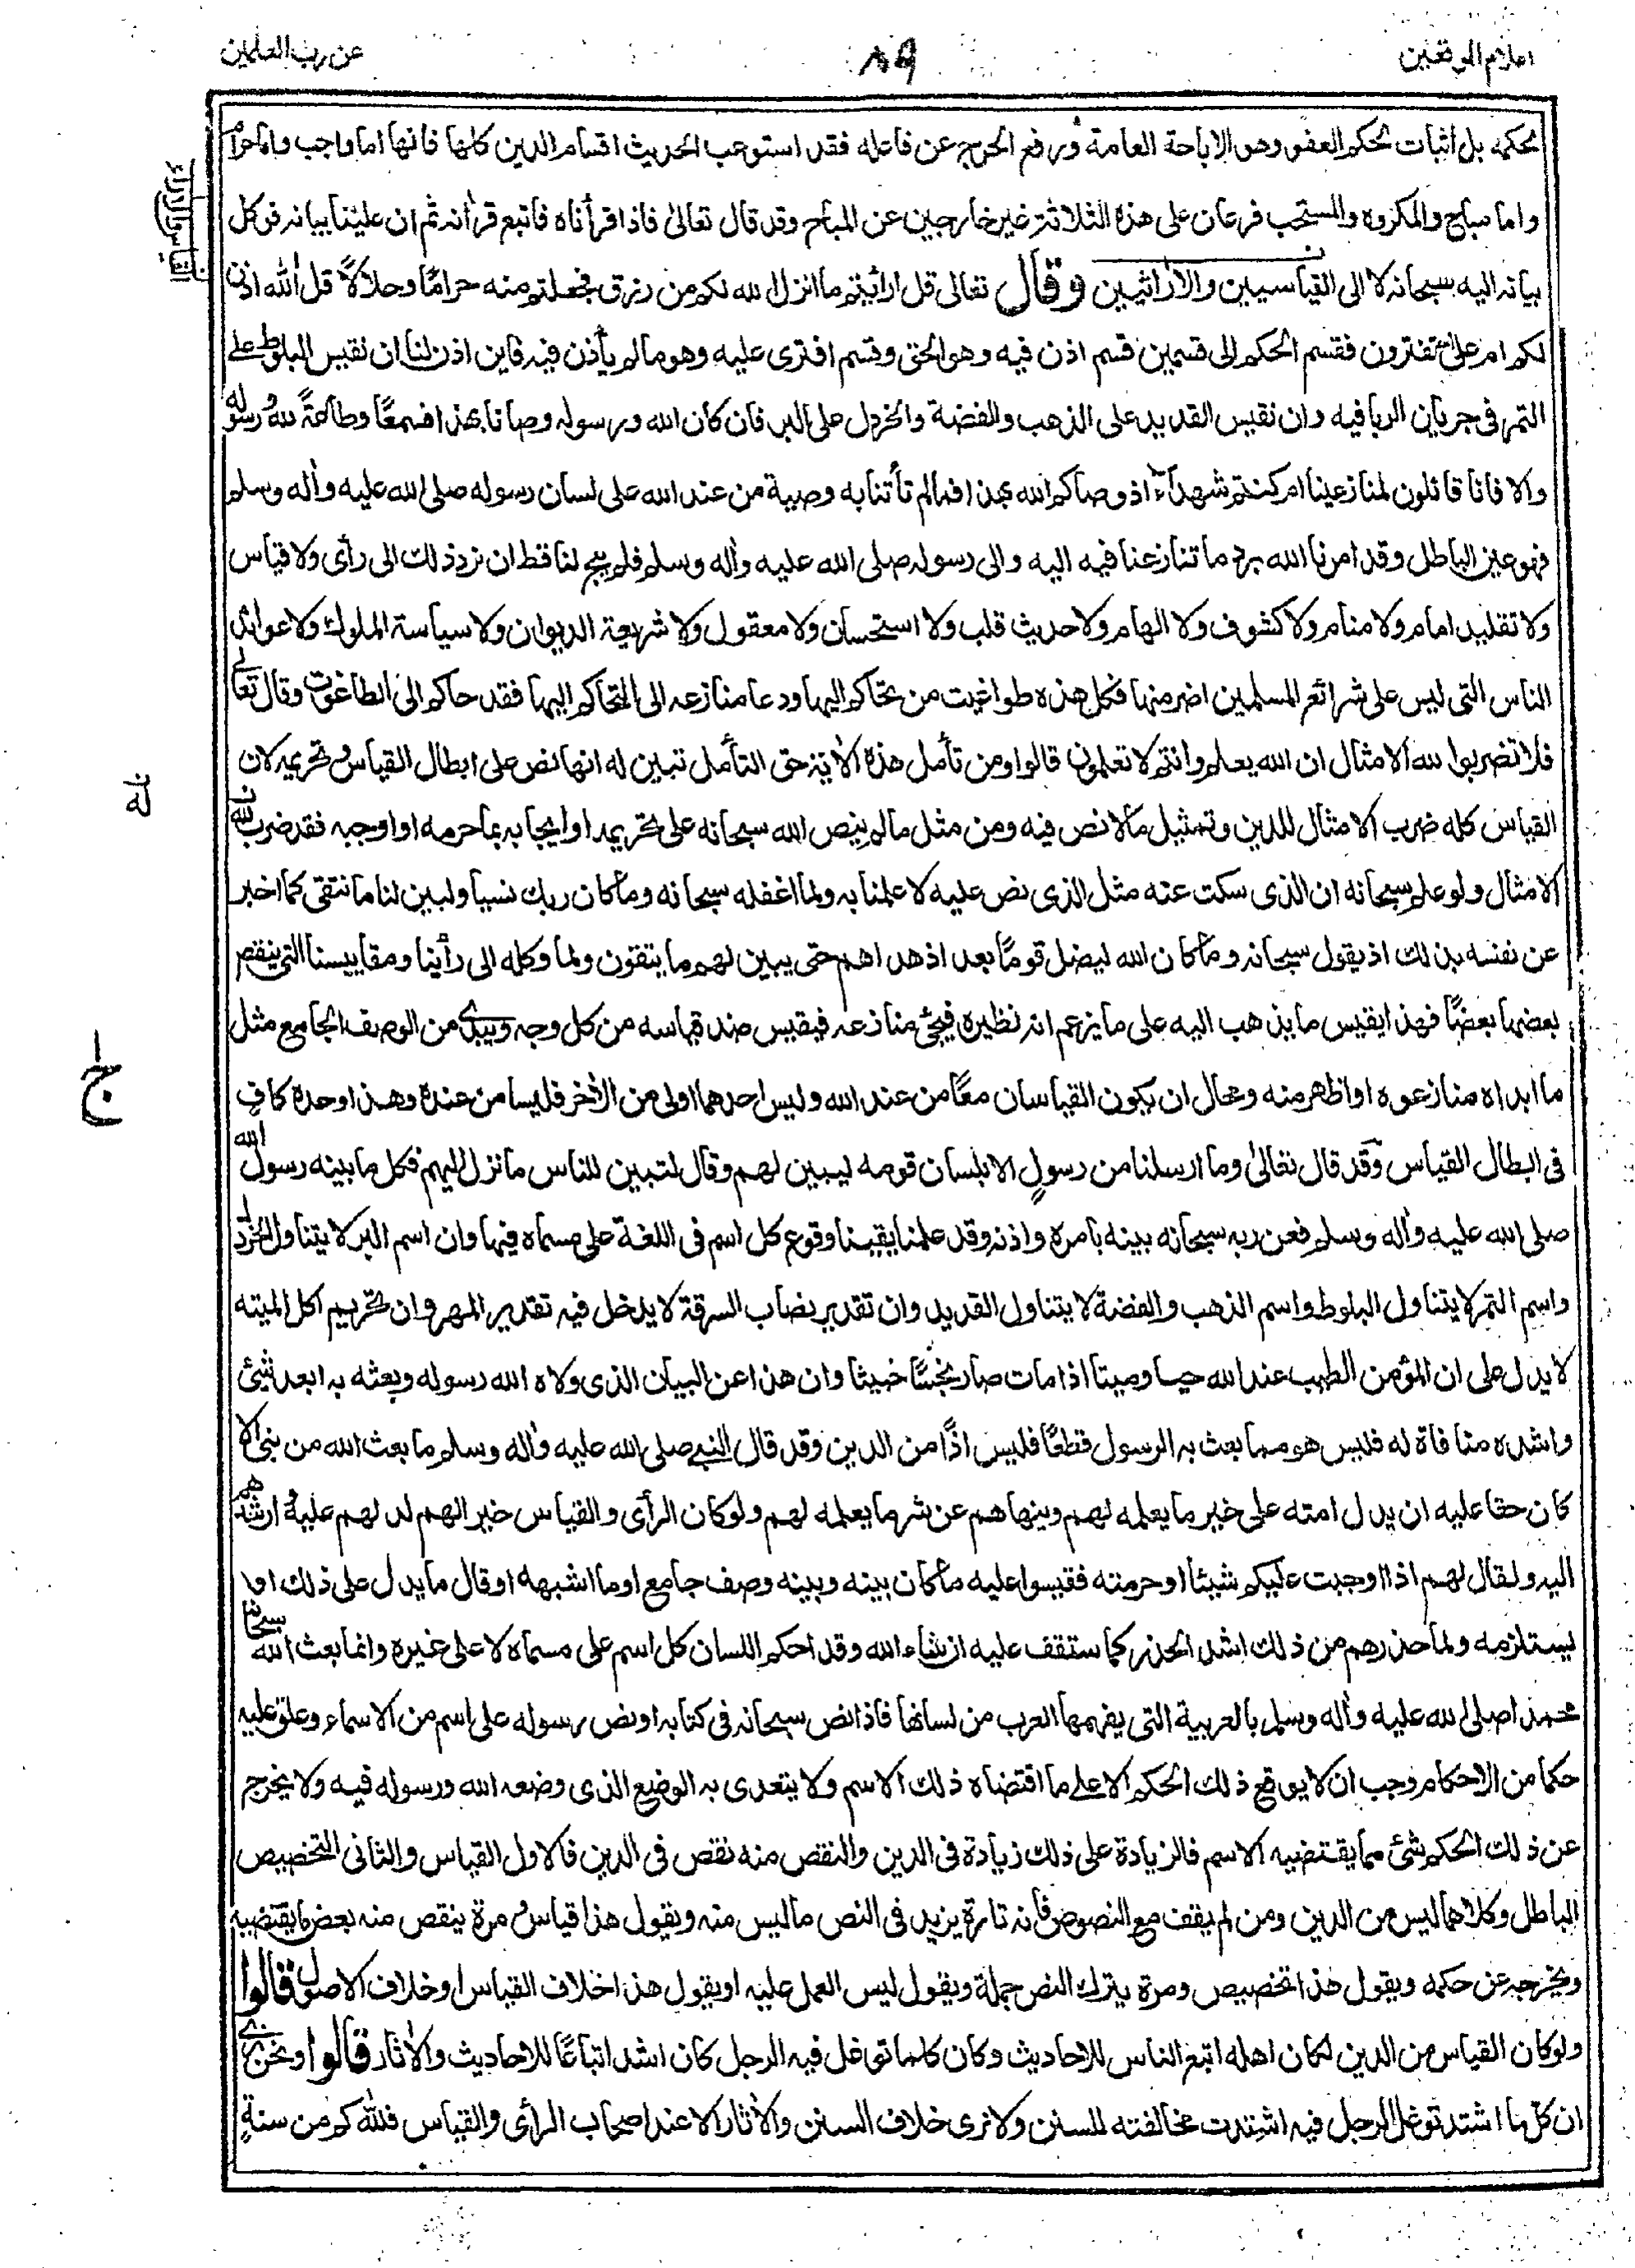 اعلام الموقعين
٨٩
عن رب العلمين
بحكمه بل اثبات لحكم العفو وهو الاباحة العامة ورفع الحرج عن فاعله فقد استوعب الحديث اقسام الدين كلها فانها اما واجب واما حرام
واما مباح والمكروه والمستحب فرعان على هذه الثلاثة غير خارجين عن المباح وقد قال تعالى فاذا قرأناه فاتبع قرأنه ثم ان علينا بيانه فوكل
بيانه اليه سبحانه لا الى القياسيين والاٰرائيين وقال تعالى قل ارأيتم ما انزل الله لكم من رزق فجعلتم منه حرامًا وحلالًا قل آلله اذن
لكم ام على الله تفترون فقسم الحكم الى قسمين قسم اذن فيه وهو الحق وقسم افترى عليه وهو ما لم يأذن فيه فاين اذن لنا ان نقيس البلوط على
التمر فى جريان الربا فيه وان نقيس القديد على الذهب والفضة والخردل على البر فان كان الله ورسوله وصانا بهذا فسمعًا وطاعةً لله ورسوله
والا فانا قائلون لمنازعينا ام كنتم شهدآء اذ وصاكم الله بهذا فما لم تأتنا به وصية من عند الله على لسان رسوله صلى الله عليه واٰله وسلم
فهو عين الباطل وقد امرنا الله برد ما تنازعنا فيه اليه والى رسوله صلى الله عليه واٰله وسلم فلم يبح لنا قط ان نرد ذلك الى رأى ولا قياس
ولا تقليد امام ولا منام ولا كشوف ولا الهام ولا حديث قلب ولا استحسان ولا معقول ولا شريعة الديوان ولا سياسة الملوك ولا عوائد
الناس التى ليس على شرائع المسلمين اضر منها فكل هذه طواغيت من تحاكم اليها ودعا منازعه الى التحاكم اليها فقد حاكم الى الطاغوت وقال تعالى
فلا تضربوا لله الامثال ان الله يعلم وانتم لا تعلمون قالوا ومن تأمل هذه الاٰية حق التأمل تبين له انها نص على ابطال القياس وتحريمه لان
القياس كله ضرب الامثال للدين وتمثيل ما لا نص فيه ومن مثل ما لم ينص الله سبحانه على تحريمه او ايجابه بما حرمه او اوجبه فقد ضرب لله
الامثال ولو علم سبحانه ان الذى سكت عنه مثل الذى نص عليه لاعلمنا به ولما اغفله سبحانه وما كان ربك نسيا ولبين لنا ما نتقى كما اخبر
عن نفسه بذلك اذ يقول سبحانه وما كان الله ليضل قومًا بعد اذ هداهم حتى يبين لهم ما يتقون ولما وكله الى رأينا ومقاييسنا التى ينقض
بعضها بعضًا فهذا يقيس ما يذهب اليه على ما يزعم انه نظيره فيجئ منازعه فيقيس ضد قياسه من كل وجه ويبدى من الوصف الجامع مثل
ما ابداه منازعوه او اظهر منه ومحال ان يكون القياسان معًا من عند الله وليس احدهما اولى من الاٰخر فليسا من عنده وهذا وحده كافٍ
فى ابطال القياس وقد قال تعالى وما ارسلنا من رسولٍ الا بلسان قومه ليبين لهم وقال لتبين للناس ما نزل اليهم فكل ما بينه رسول الله
صلى الله عليه واٰله وسلم فعن ربه سبحانه بينه بامره واذنه وقد علمنا يقينا وقوع كل اسم فى اللغة على مسماه فيها وان اسم البر لا يتناول الخردل
واسم التمر لا يتناول البلوط واسم الذهب والفضة لا يتناول القديد وان تقدير نصاب السرقة لا يدخل فيه تقدير المهر وان تحريم اكل الميته
لا يدل على ان المؤمن الطيب عند الله حيا وميتا اذا مات صار نجسًا خبيثا وان هذا عن البيان الذى ولاه الله رسوله وبعثه به ابعد شئى
واشده منافاة له فليس هو مما بعث به الرسول قطعًا فليس اذًا من الدين وقد قال النبى صلى الله عليه واٰله وسلم ما بعث الله من نبى الا
كان حقا عليه ان يدل امته على خير ما يعلمه لهم وينهاهم عن شر ما يعلمه لهم ولو كان الرأى والقياس خيرا لهم لدلهم عليه وارشدهم
اليه ولقال لهم اذا اوجبت عليكم شيئا او حرمته فقيسوا عليه ما كان بينه وبينه وصف جامع او ما اشبهه او قال ما يدل على ذلك او
يستلزمه ولما حذرهم من ذلك اشد الحذر كما ستقف عليه ان شاء الله وقد احكم اللسان كل اسم على مسماه لا على غيره وانما بعث الله سبحانه
محمدا صلى الله عليه واٰله وسلم بالعربية التى يفهمها العرب من لسانها فاذا نص سبحانه فى كتابه او نص رسوله على اسم من الاسماء وعلق عليه
حكما من الاحكام وجب ان لا يوقع ذلك الحكم الا على ما اقتضاه ذلك الاسم ولا يتعدى به الوضع الذى وضعه الله ورسوله فيه ولا يخرج
عن ذلك الحكم شئ مما يقتضيه الاسم فالزيادة على ذلك زيادة فى الدين والنقص منه نقص فى الدين فالاول القياس والثانى التخصيص
الباطل وكلاهما ليس من الدين ومن لم يقف مع النصوص فانه تارة يزيد فى النص ما ليس منه ويقول هذا قياس ومرة ينقص منه بعض ما يقتضيه
ويخرجه عن حكمه ويقول هذا تخصيص ومرة يترك النص جملة ويقول ليس العمل عليه او يقول هذا خلاف القياس او خلاف الاصول قالوا
ولو كان القياس من الدين لكان اهله اتبع الناس للاحاديث وكان كلما توغل فيه الرجل كان اشد اتباعًا للاحاديث والاٰثار قالوا ونحن نرى
ان كل ما اشتد توغل الرجل فيه اشتدت مخالفته للسنن ولا نرى خلاف السنن والاٰثار الا عند اصحاب الرأى والقياس فلله كم من سنةٍ